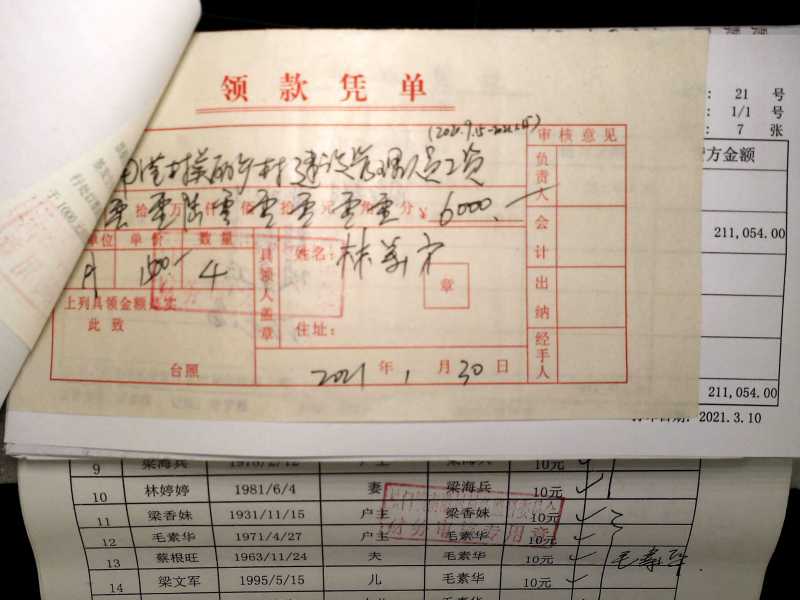 领款凭单
审核意见
村美丽乡村建设管理员工资
负责人
零拾零万陆仟零佰零拾零元零角零分¥6000.—
会计
单位 单价 数量
月 1500.— 4
具领人盖章
姓名：林
章
出纳
上列具领金额是实
此致
住址：
经手人
台照
2021年1月30日
21 号
1/1 号
7 张
方金额
211,054.00
211,054.00
打印日期：2021.3.10
9 梁海兵 1976/2/12 户主 梁海兵 10元
10 林婷婷 1981/6/4 妻 梁海兵 10元
11 梁香妹 1931/11/15 户主 梁香妹 10元
12 毛素华 1971/4/27 户主 毛素华 10元
13 蔡根旺 1963/11/24 夫 毛素华 10元 毛素华
14 梁文军 1995/5/15 儿 毛素华 10元
专用章